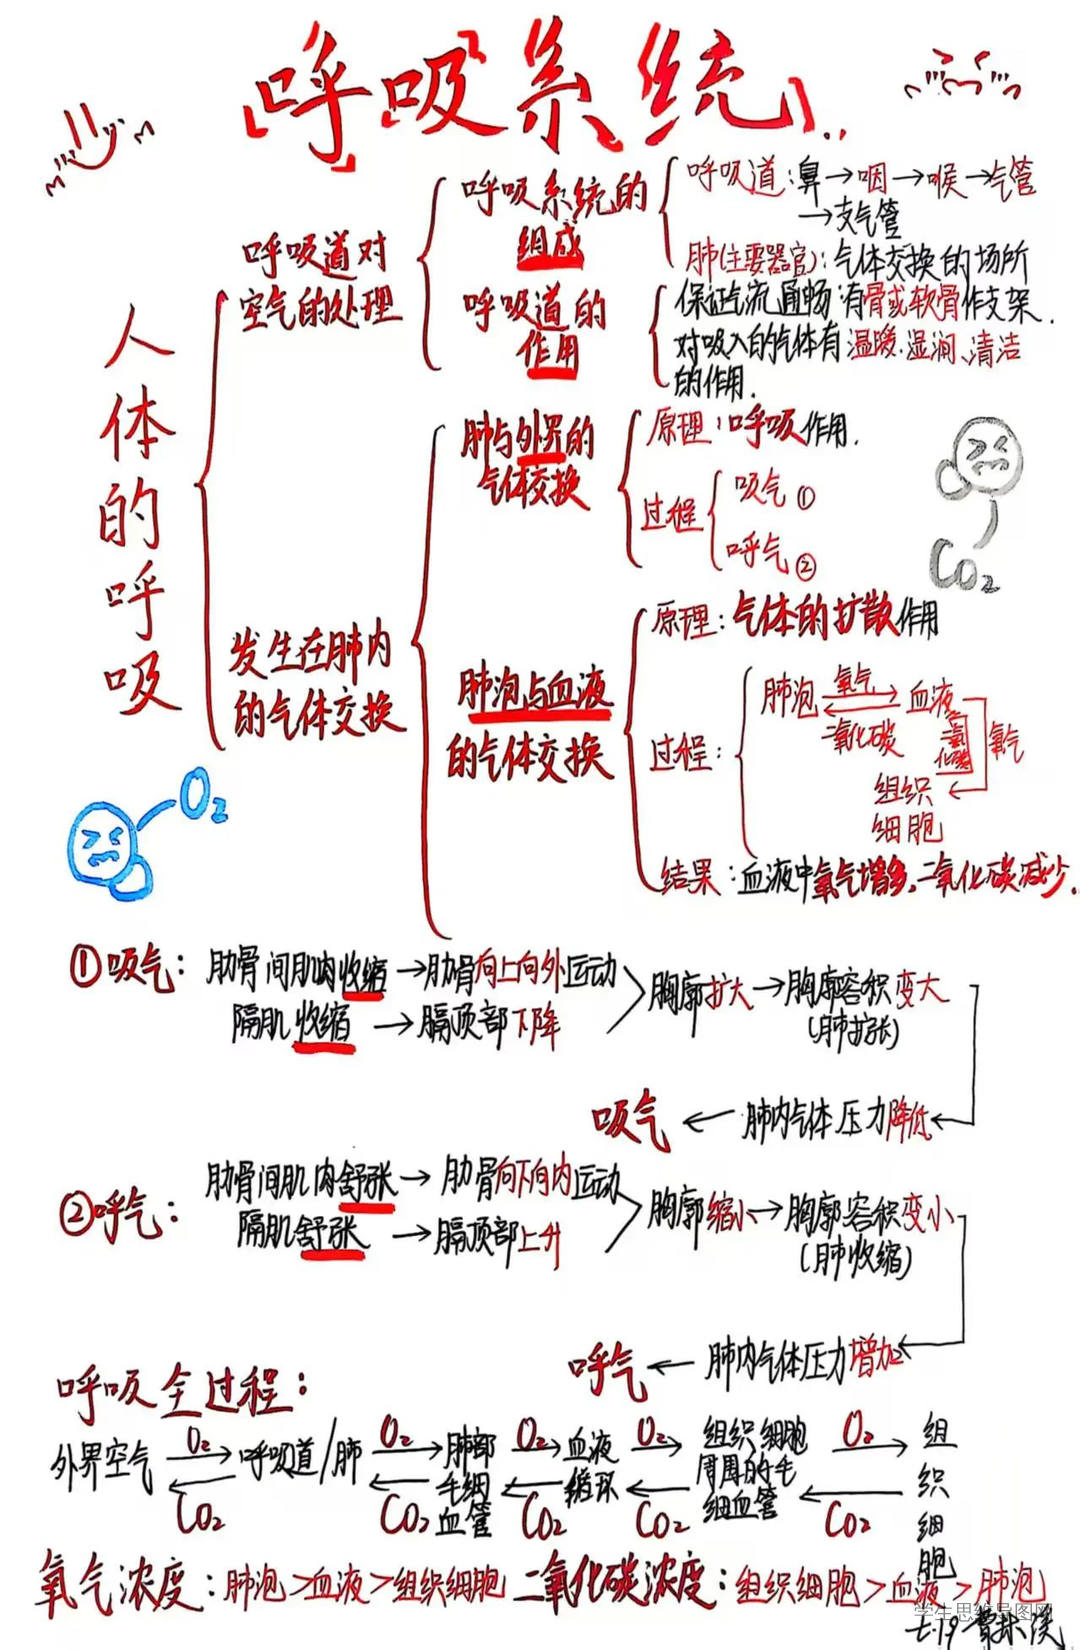 呼吸系统
人体的呼吸
呼吸道对
空气的处理
呼吸系统的
组成
呼吸道:鼻→咽→喉→气管
→支气管
肺(主要器官):气体交换的场所
呼吸道的
作用
保证气流通畅有骨或软骨作支架.
对吸入的气体有温暖.湿润、清洁
的作用.
发生在肺内
的气体交换
肺与外界的
气体交换
原理:呼吸作用.
过程
吸气①
呼气②
CO₂
肺泡与血液
的气体交换
原理:气体的扩散作用
过程:
肺泡 氧气 血液
二氧化碳
二氧化碳 氧气
组织
细胞
结果:血液中氧气增多,二氧化碳减少.
O₂
①吸气:
肋骨间肌肉收缩→肋骨向上向外运动
隔肌收缩→膈顶部下降
胸廓扩大→胸廓容积变大
(肺扩张)
吸气←肺内气体压力降低
②呼气:
肋骨间肌肉舒张→肋骨向下向内运动
隔肌舒张→膈顶部上升
胸廓缩小→胸廓容积变小
(肺收缩)
呼气←肺内气体压力增加
呼吸全过程:
外界空气 O₂ CO₂ 呼吸道/肺 O₂ CO₂ 肺部毛细血管 O₂ CO₂ 血液循环 O₂ CO₂ 组织细胞周围的毛细血管 O₂ CO₂ 组织细胞
氧气浓度:肺泡>血液>组织细胞 二氧化碳浓度:组织细胞>血液>肺泡
学生思维导图网
七.19